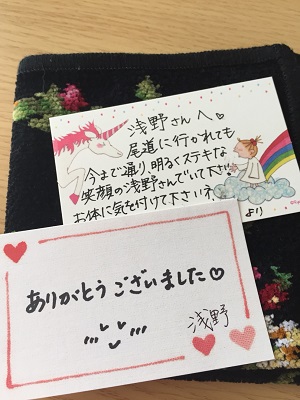 浅野さんへ♡
尾道に行かれても
今まで通り、明るくステキな
笑顔の浅野さんでいて下さい!
お体に気を付けて下さいネ
より
ありがとうございました♡
浅野